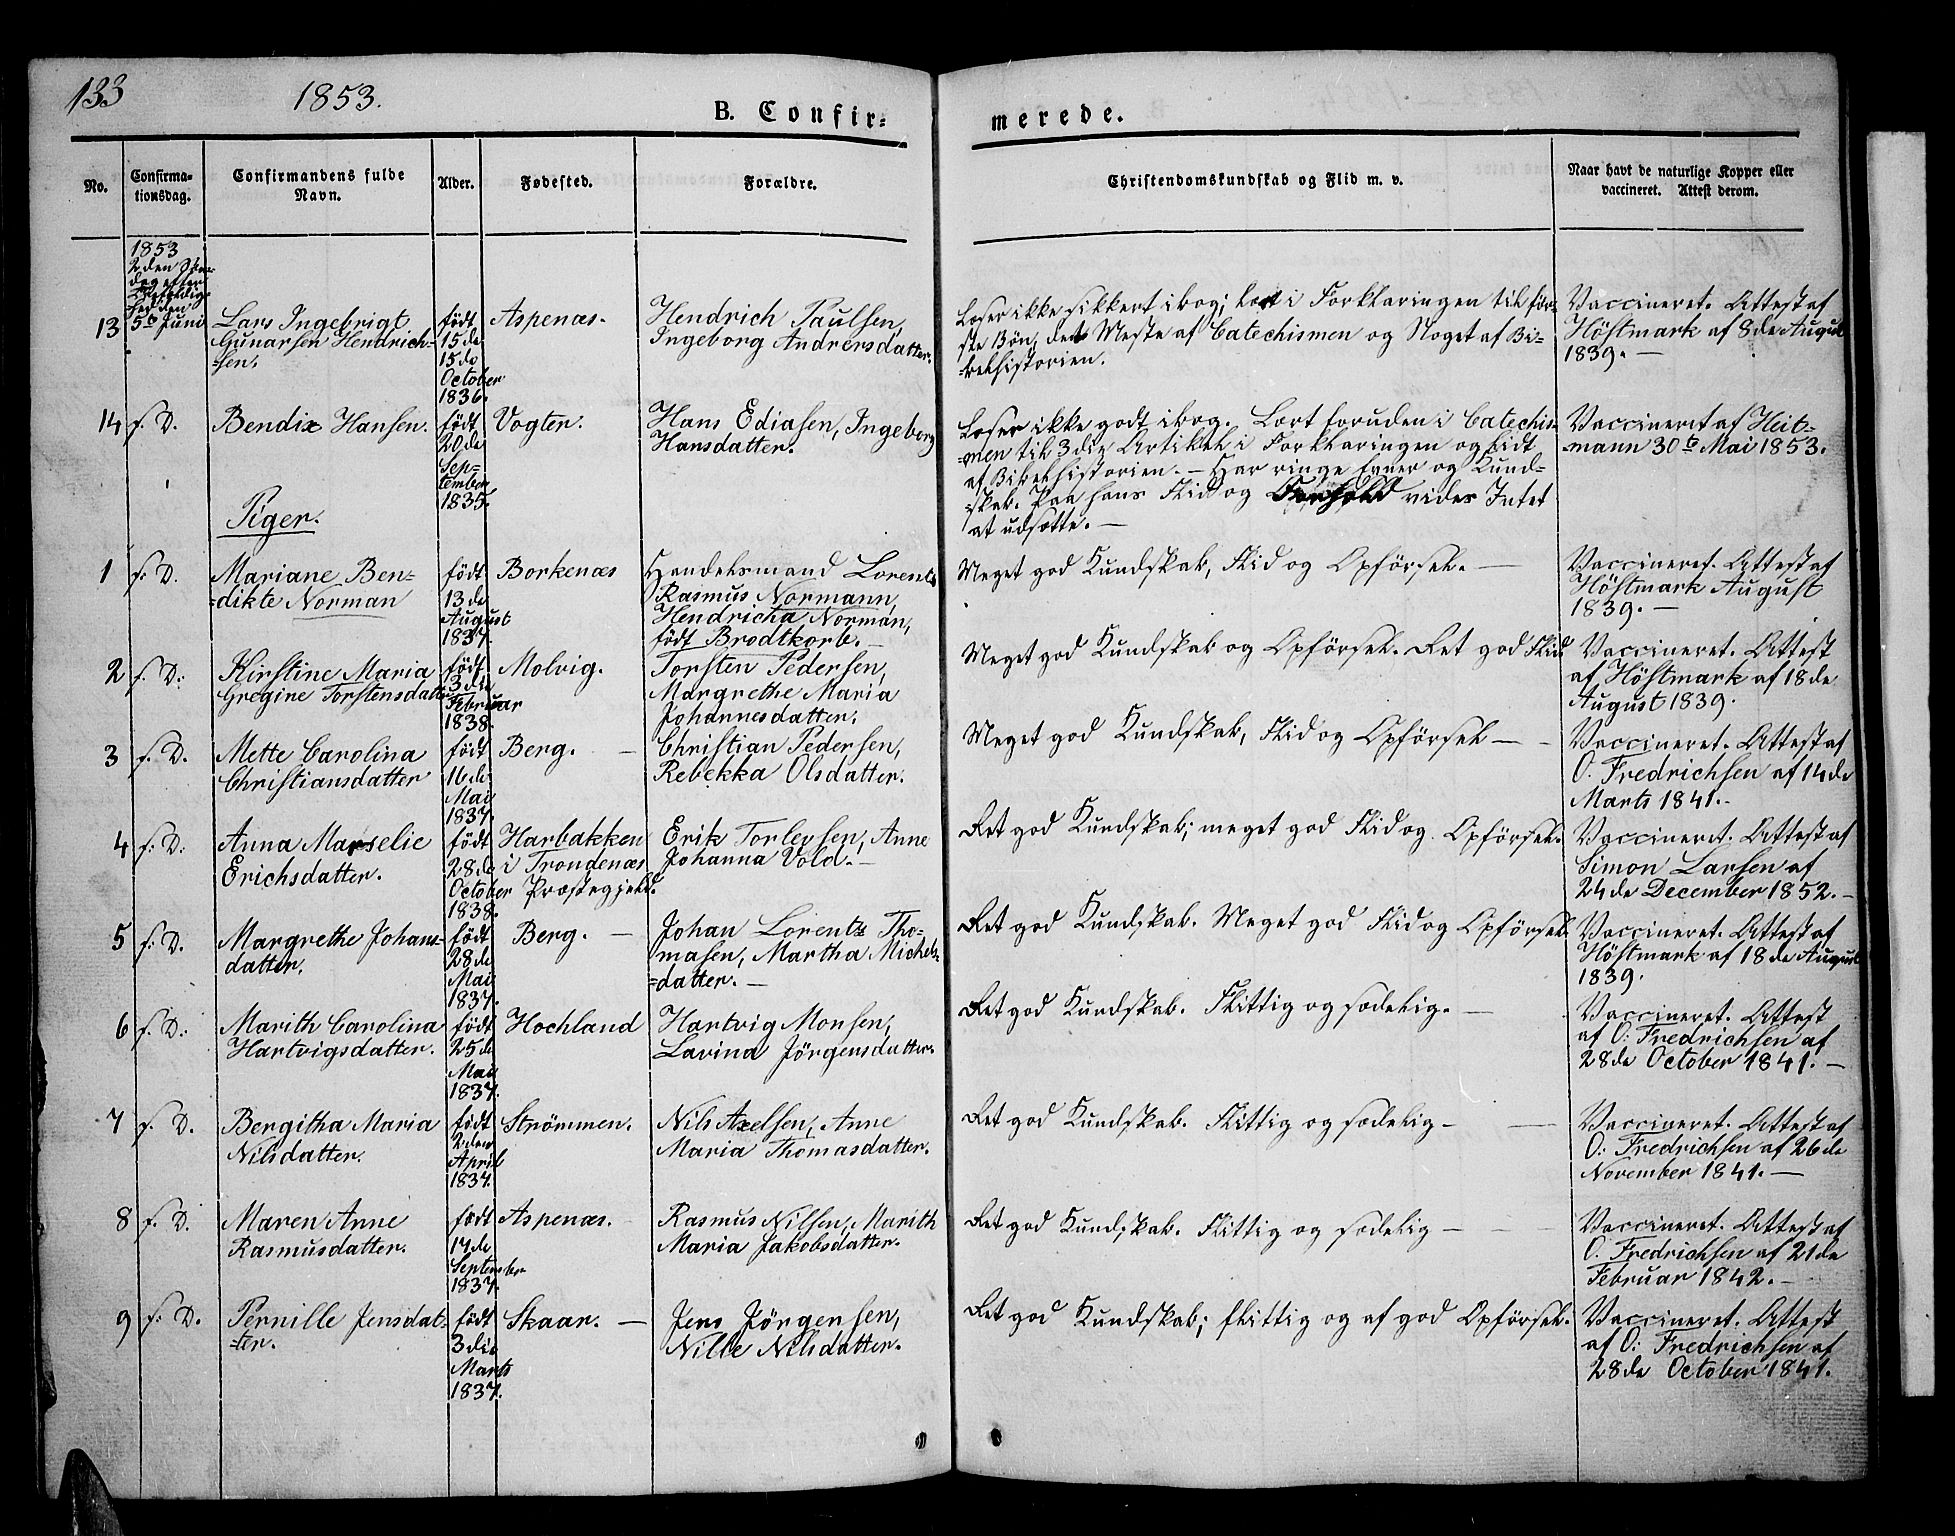 133
1853.
B. Confir-
merede.
No.
Confirma-
tionsdag.
Confirmandens fulde
Navn.
Alder.
Fødested.
Forældre.
Christendomskundskab og Flid m. v.
Naar havt de naturlige Kopper eller
vaccineret. Attest derom.
1853
2den
dag efter
5te Juni
13
Lars Ingebrigt
Gunarsen Hendrich-
-sen.
født
15de
15de
October
1836.
Aspenæs.
Hendrich Paulsen,
Ingeborg Andrersdatter.
Læser ikke sikkert i bog; lært i Forklaringen til før-
ste Bøn, det Meste af Catechismen og Noget af Bi-
-belhistorien.
Vaccineret. Attest af
Höstmark af 8de August
1839. —
14
f. D.
Bendix Hansen.
født
20de
Sep-
tember
1835.
Vogten.
Hans Ediasen, Ingeborg
Hansdatter.
Læser ikke godt i bog. Lært foruden i Catechis-
-men til 3die Artikel i Forklaringen og lidt
af Bibelhistorien. — Har ringe Evner og Kund-
-skab. Paa hans Flid og Forhold vides Intet
at udsætte. —
Vaccineret af Heit-
-mann 30te Mai 1853.
Piger.
1
f. D.
Mariane Ben-
-dikte Norman
født
13de
August
1837.
Borkenæs
Handelsmand Lorents
Rasmus Normann,
Hendricha Norman,
født Brodtkorb. —
Meget god Kundskab, Flid og Opførsel. —
Vaccineret. Attest af
Höstmark August
1839. —
2
f. D:
Kirstine Maria
Gregine Torstensdatter
født
3die
Februar
1838.
Molvig.
Torsten Pedersen,
Margrethe Maria
Johannesdatter.
Meget god Kundskab og Opførsel. Ret god Flid
Vaccineret. Attest
af Höstmark af 18de
August 1839.
3
f. D.
Mette Carolina
Christiansdatter
født
16de
Mai
1837.
Berg. —
Christian Pedersen,
Rebekka Olsdatter.
Meget god Kundskab, Flid og Opførsel — -
Vaccineret. Attest af
O. Fredrichsen af 14de
Marts 1841. -
4
f. D:
Anna Marselie
Erichsdatter.
født
28de
October
1838.
Harbakken
i Trondenæs
Præstegjeld.
Erik Torlevsen, Anne
Johanna Vold. —
Ret god Kundskab; meget god Flid og Opførsel.
Vaccineret. Attest af
Simon Larsen af
24de December 1852. —
5
f. D.
Margrethe Johans-
datter.
født
28de
Mai
1837.
Berg. —
Johan Lorentz Tho-
masen, Martha Michels-
=datter. —
Ret god Kundskab. Meget god Flid og Opførsel.
Vaccineret. Attest af
Höstmark af 18de August
1839.
6
f. D:
Marith Carolina
Hartvigsdatter.
født
25de
Mai
1837.
Hochland
Hartvig Monsen,
Lavina Jörgensdatter.
Ret god Kundskab. Flittig og sædelig. —
Vaccineret. Attest
af O: Fredrichsen af
28de October 1841. —
7
f. D.
Bergitha Maria
Nilsdatter.
født
2den
April
1837.
Strömmen.
Nils Axelsen, Anne
Maria Thomasdatter.
Ret god Kundskab. Flittig og sædelig — —
Vaccineret. Attest af
O: Fredrichsen af 26de
November 1841. —
8
f. D.
Maren Anne
Rasmusdatter.
født
17de
September
1837.
Aspenæs. -
Rasmus Nilsen, Marith
Maria Jakobsdatter.
Ret god Kundskab. Flittig og sædelig — —
Vaccineret. Attest af
O. Fredrichsen af 21de
Februar 1842. —
9
f. D.
Pernille Jensdat-
-ter.
født
3die
Marts
1837.
Skaar. —
Jens Jörgensen,
Nille Nilsdatter.
Ret god Kundskab; flittig og af god Opførsel.
Vaccineret. Attest
af O: Fredrichsen af
28de October 1841.